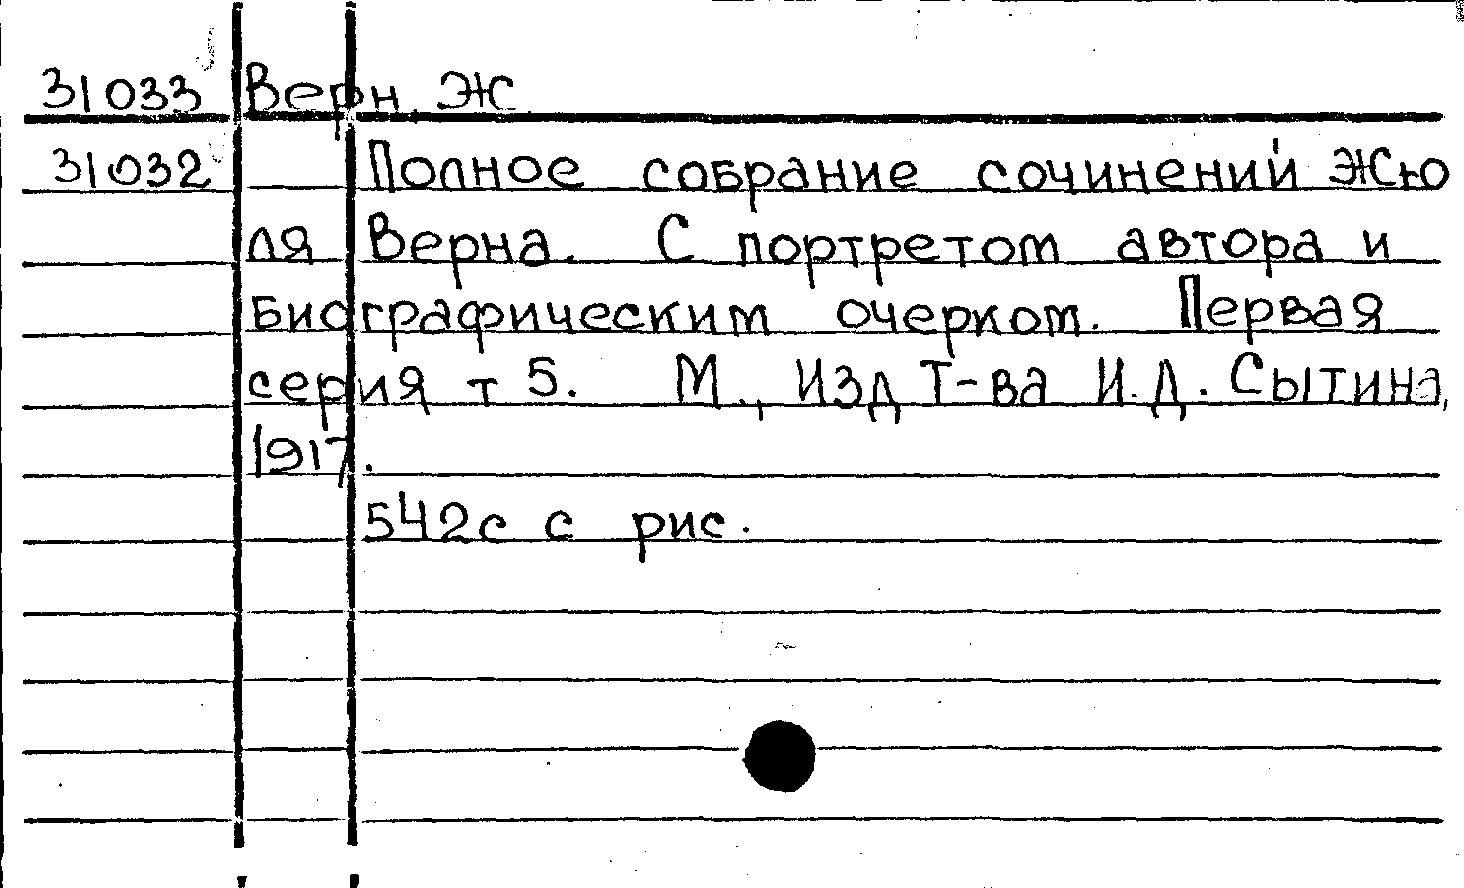 31033 Верн Ж
31032 Полное собрание сочинений Жю
ля Верна. С портретом автора и
биографическим очерком. Первая
серия т 5. М., Изд Т-ва И.Д. Сытина,
1917.
542с с рис.